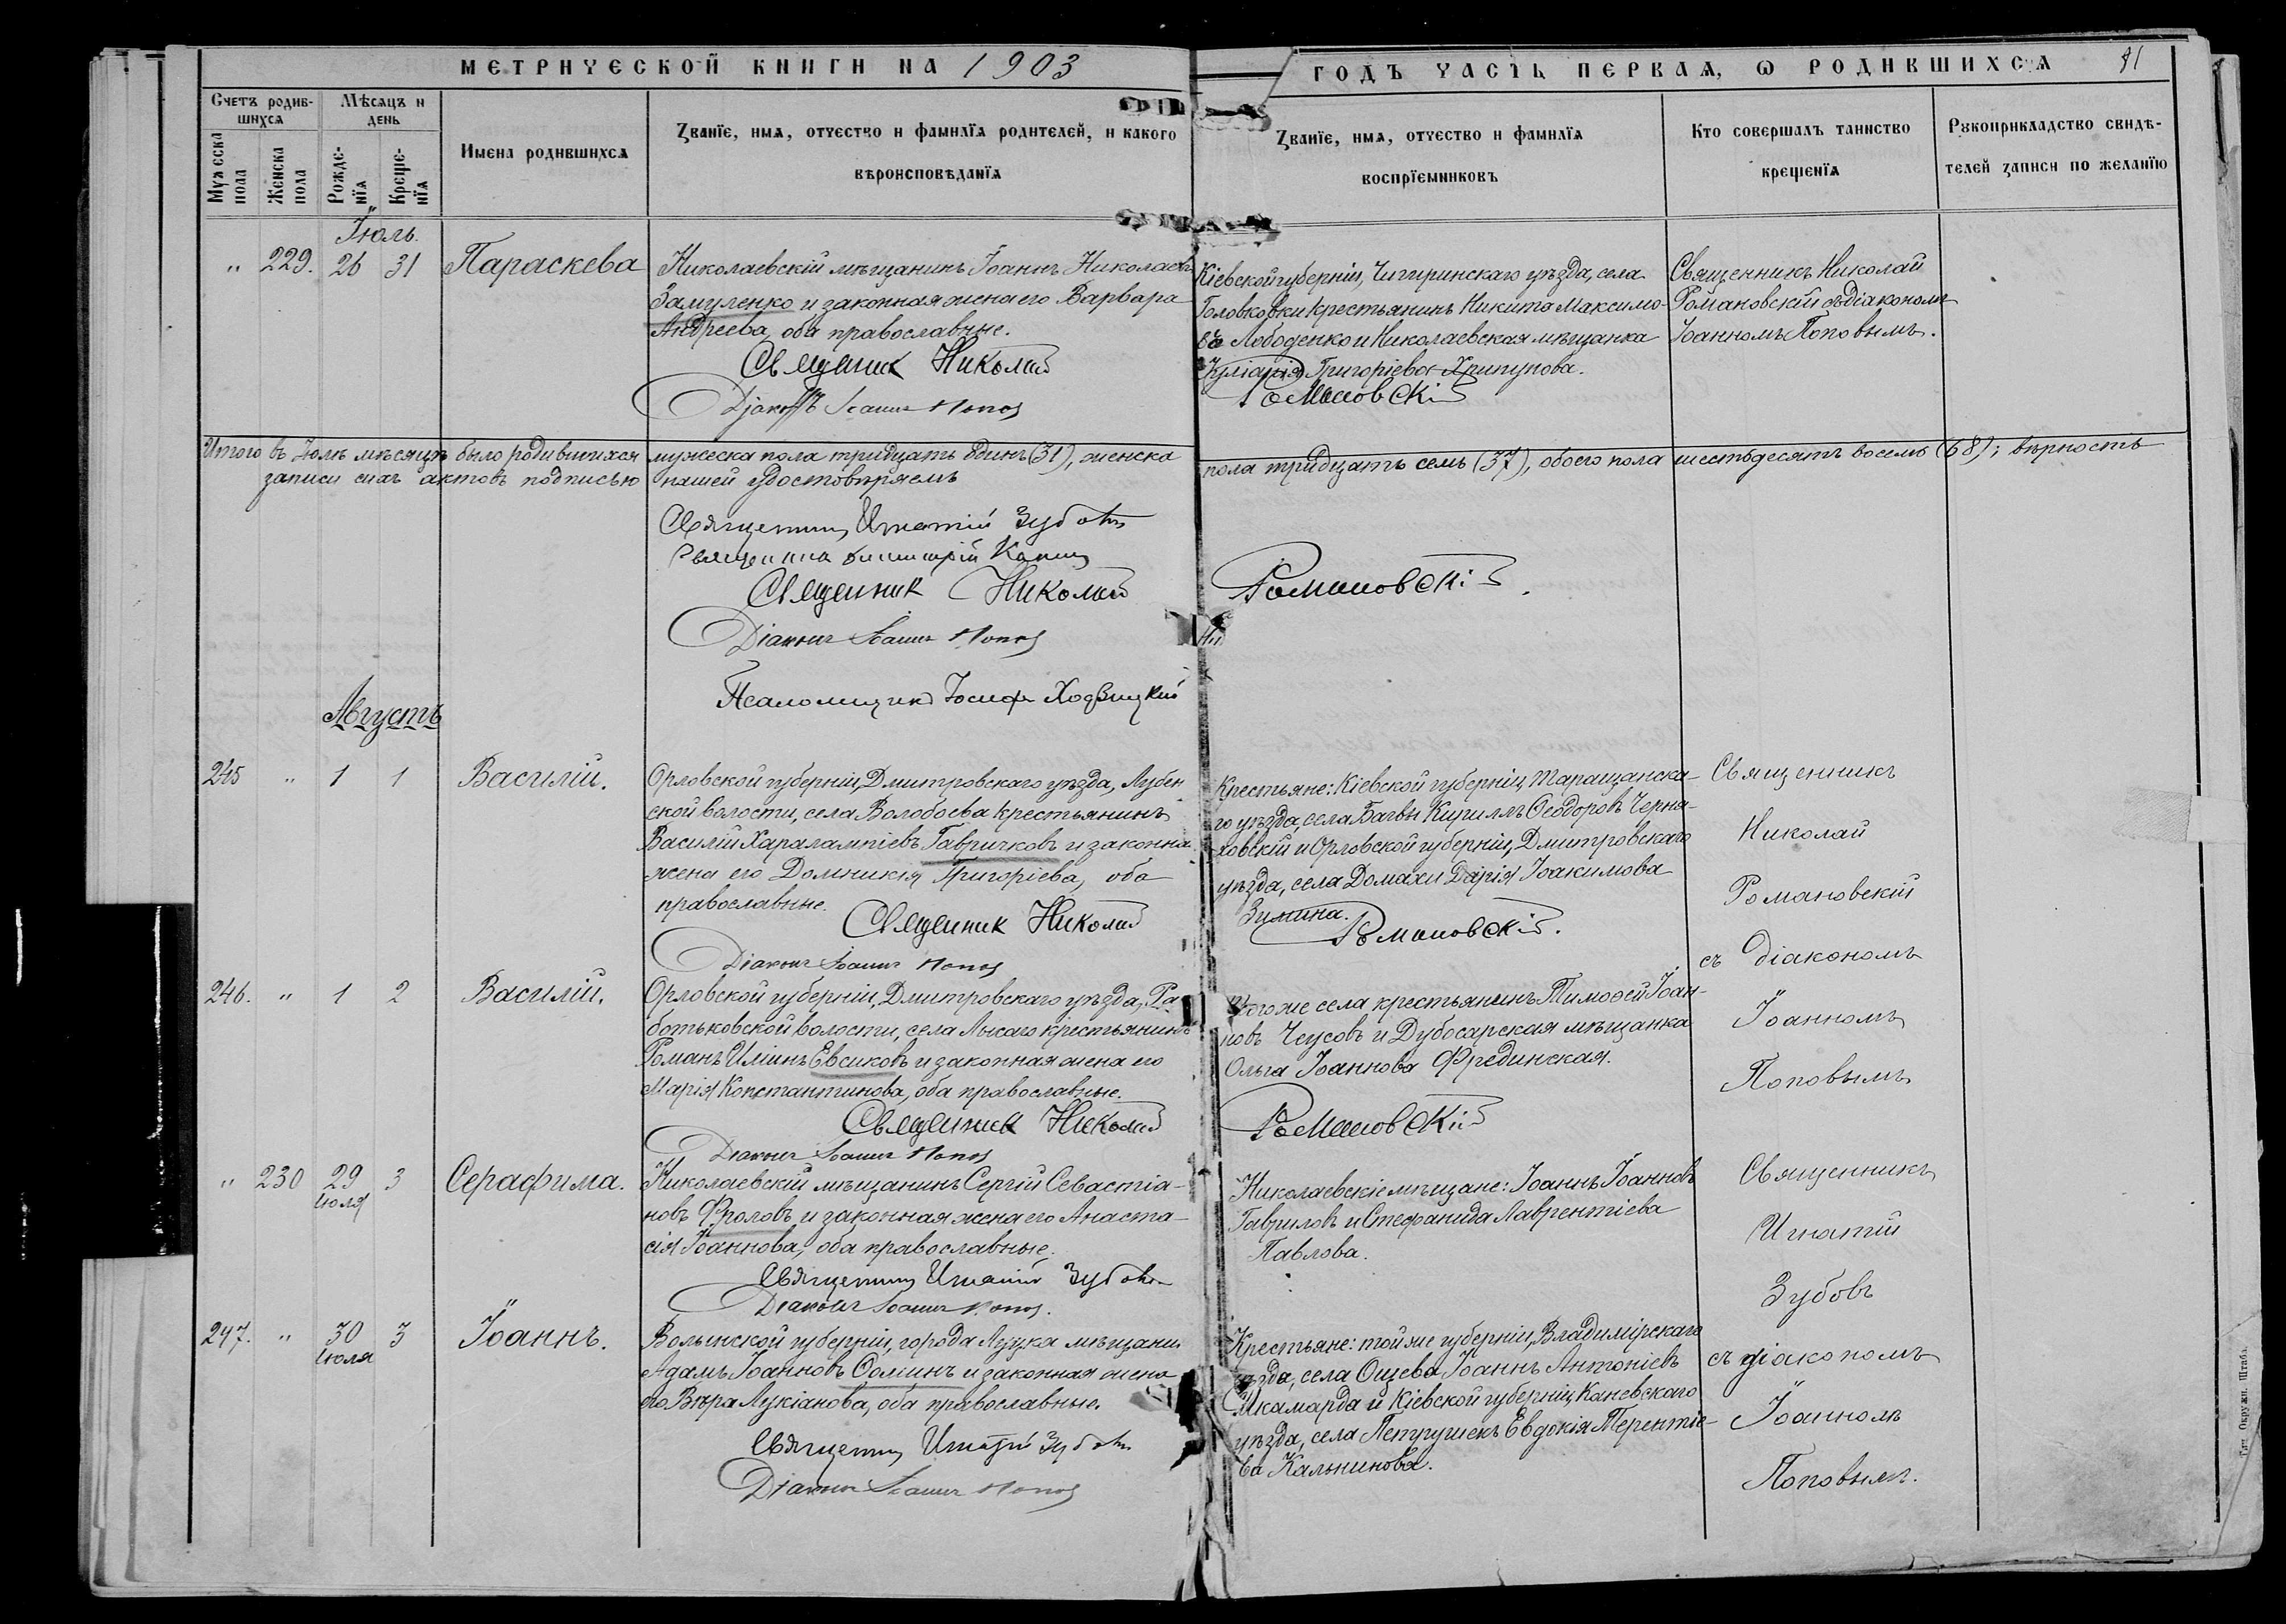 МЕТРИЧЕСКОЙ КНИГИ НА 1903
ГОДЪ ЧАСТЬ ПЕРВАЯ, Ѡ РОДИВШИХСЯ
Счетъ родив-
шихся
Мужеска
пола
Женска
пола
Мѣсяцъ и
день
Рожде-
нїя
Креще-
нїя
Имена родившихся
Званїе, имя, отчество и фамилїя родителей, и какого
вѣроисповѣданїя
Званїе, имя, отчество и фамилїя
воспрїемниковъ
Кто совершалъ таинство
крещенїя
Рукоприкладство свидѣ-
телей записи по желанїю
Іюль.
" 229. 26 31 Параскева
Николаевскій мѣщанинъ Іоаннъ Николаевъ
Замуленко и законная жена его Варвара
Андреева, оба православные.
Священик Николай
Романовскій
Діаконъ Іоаннъ Попов
Кіевской губерніи, Чигиринскаго уѣзда, села
Головковки крестьянинъ Никита Максимо-
въ Лободенко и Николаевская мѣщанка
Іуліанія Григоріева Хрипунова.
Священникъ Николай
Романовскій съ діакономъ
Іоанномъ Поповымъ.
Итого въ Іюлѣ мѣсяцѣ было родившихся мужеска пола тридцать одинъ (31), женска пола тридцать семь (37), обоего пола шестьдесятъ восемь (68); вѣрность
записи сихъ актовъ подписью нашей удостовѣряемъ
Священникъ Игнатій Зубовъ
Священникъ
Священик Николай Романовскій.
Діаконъ Іоаннъ Попов
Псаломщикъ Іосифъ Ходзицкій
Августъ
245 " 1 1 Василій.
Орловской губерніи, Дмитровскаго уѣзда, Лубен
ской волости, села Волобоева крестьянинъ
Василій Харалампіевъ Гавричковъ и законна
жена его Домникія Григоріева, оба
православные.
Священик Николай Романовскій.
Діаконъ Іоаннъ Попов
Крестьяне: Кіевской губерніи, Таращанска-
го уѣзда, села Багвы Кириллъ Ѳеодоровъ Черня-
ховскій и Орловской губерніи, Дмитровскаго
уѣзда, села Домахи Дарія Іоакимова
Зимина.
Священникъ
Николай
Романовскій
съ діакономъ
Іоанномъ
Поповымъ
246. " 1 2 Василій.
Орловской губерніи, Дмитровскаго уѣзда, Ра
ботьковской волости, села Лысаго крестьянинъ
Романъ Иліинъ Евсиковъ и законная жена его
Марія Константинова, оба православные.
Священик Николай Романовскій
Діаконъ Іоаннъ Попов
Того же села крестьянинъ Тимоѳей Іоан-
новъ Чеусовъ и Дубосарская мѣщанка
Ольга Іоаннова Фрединская.
" 230 29 3 Серафима.
іюля
Николаевскій мѣщанинъ Сергій Севастіа-
новъ Фроловъ и законная жена его Анаста-
сія Іоаннова, оба православные.
Священникъ Игнатій Зубовъ
Діаконъ Іоаннъ Попов.
Николаевскіе мѣщане: Іоаннъ Іоанновъ
Гавриловъ и Стефанида Лаврентіева
Павлова.
Священникъ
Игнатій
Зубовъ
съ діакономъ
Іоанномъ
Поповымъ.
247. " 30 3 Іоаннъ.
іюля
Волынской губерніи, города Луцка мѣщани
Адамъ Іоанновъ и законная жена
его Вѣра Лукіанова, оба православные.
Священникъ Игнатій Зубовъ
Діаконъ Іоаннъ Попов
Крестьяне: той же губерніи, Владимірскаго
уѣзда, села Ощева Іоаннъ Антоніевъ
Шкамарда и Кіевской губерніи, Каневскаго
уѣзда, села Пепрушекъ Евдокія Терентіе-
ва Кальникова.
Тип. Окружн. Штаба.